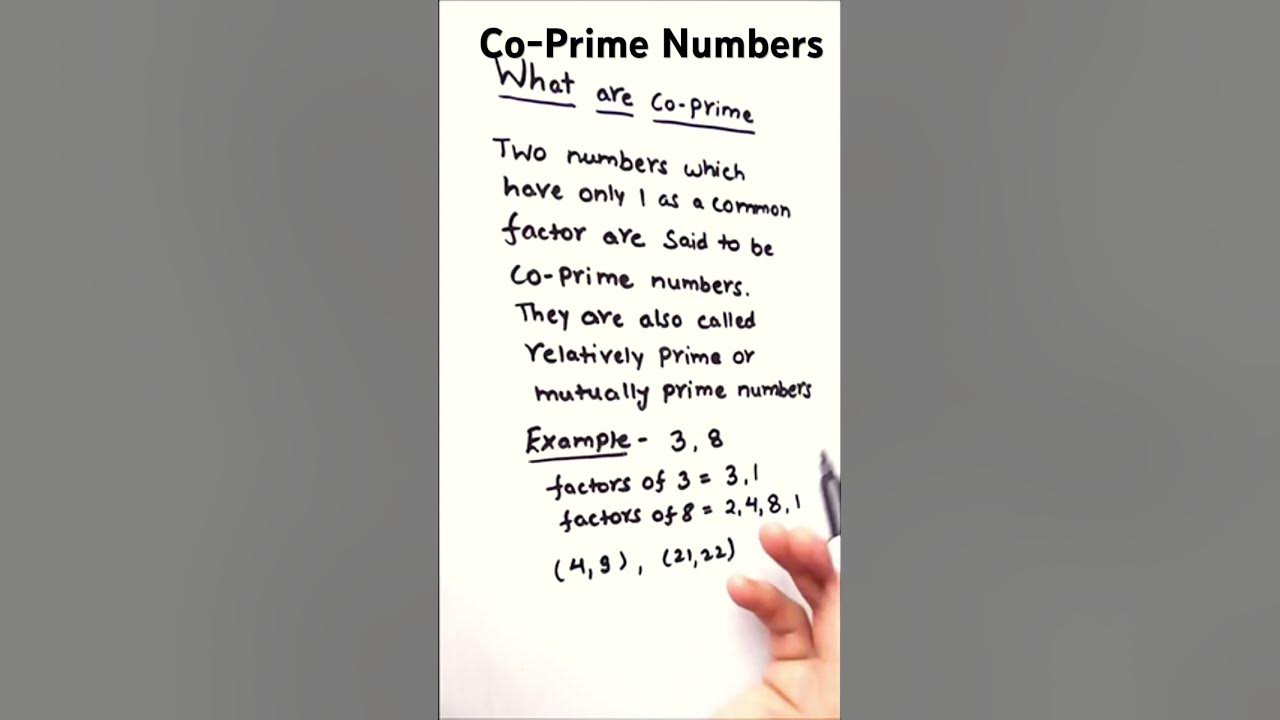 Co-Prime Numbers
What are Co-prime
Two numbers which
have only 1 as a common
factor are said to be
Co-prime numbers.
They are also called
relatively prime or
mutually prime numbers
Example - 3, 8
factors of 3 = 3,1
factors of 8 = 2,4,8,1
(4,9), (21,22)